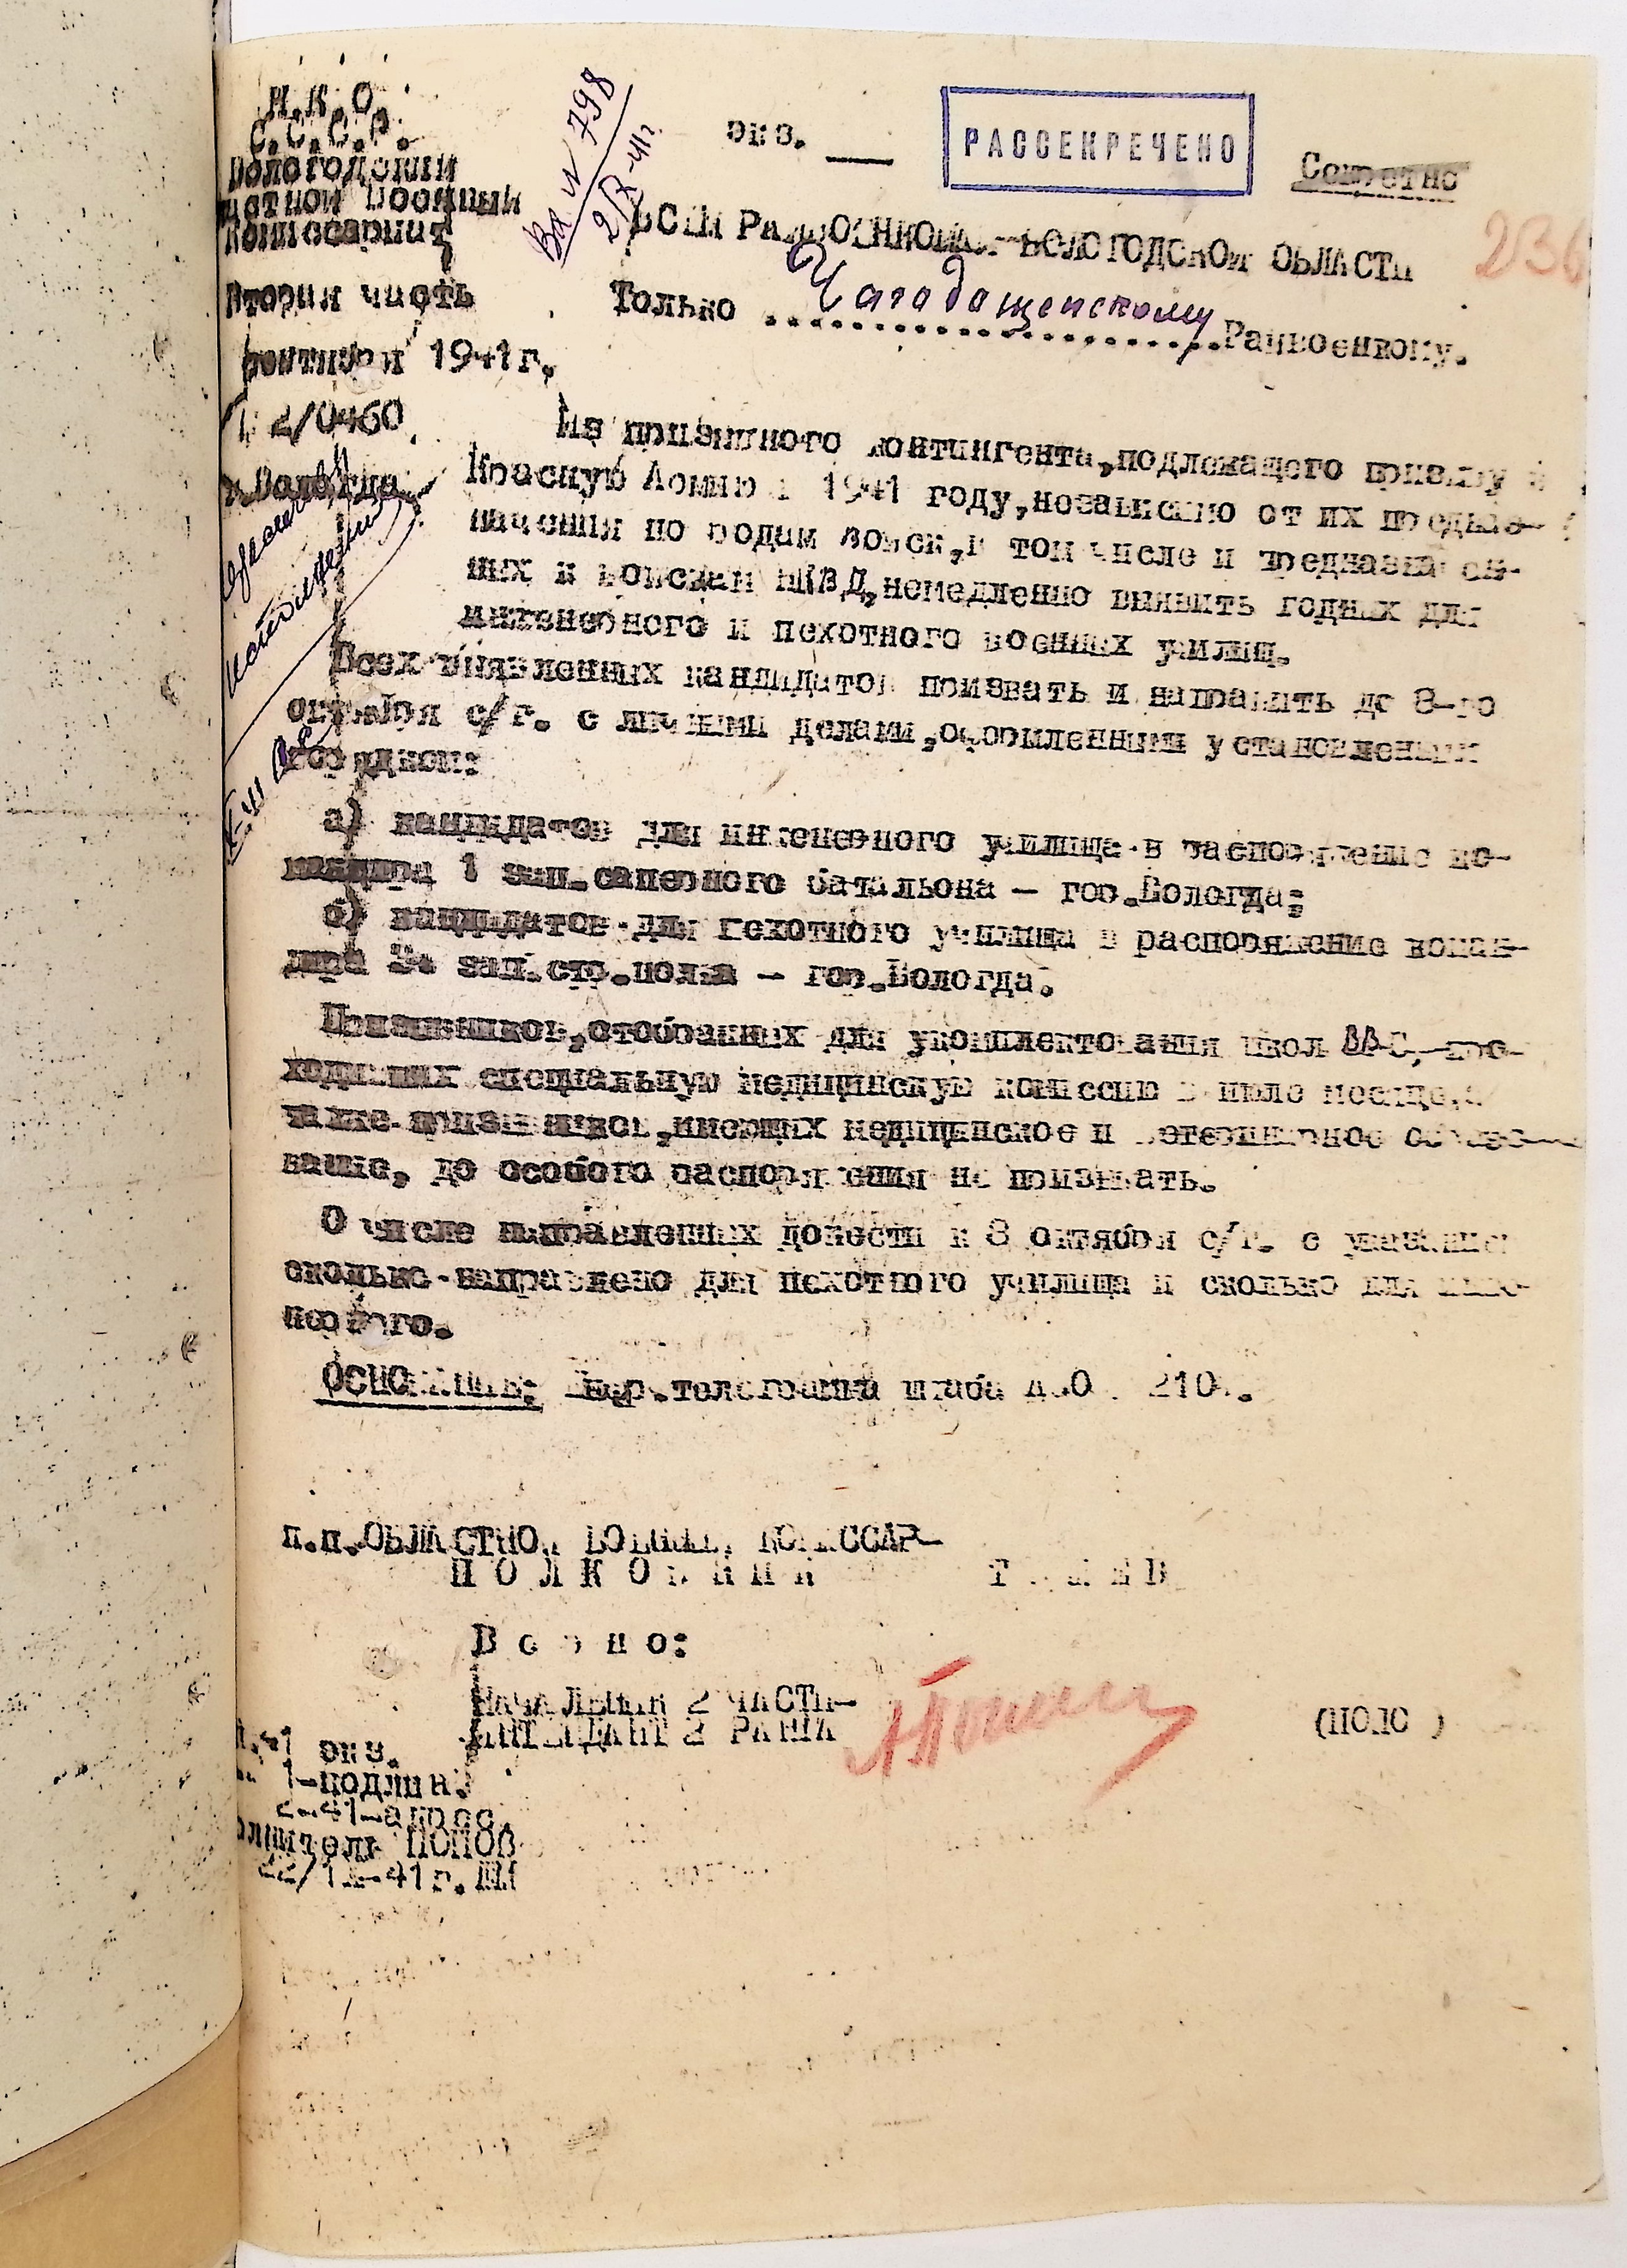 Н.К.О.
С.С.С.Р.
Вологодский
Областной Военный
Комиссариат
Вторая часть
сентября 1941г.
2/0460
г.Вологда
Вх N 798
2/X-41г
экз. __
РАССЕКРЕЧЕНО
Секретно
236
ВСЕМ РАЙВОЕНКОМАМ ВОЛОГОДСКОЙ ОБЛАСТИ
Только Чагодощенскому Райвоенкому.
Из призывного контингента,подлежащего призыву в
Красную Армию в 1941 году,независимо от их предназ-
начения по родам войск,в том числе и предназначен-
ных к войскам НКВД,немедленно выявить годных для
инженерного и пехотного военных училищ.
Всех выявленных кандидатов призвать и направить до 8-го
октября с/г. с личными делами,оформленными установленным
порядком:
а) кандидатов для инженерного училища в распоряжение ко-
мандира 1 зап.саперного батальона – гор.Вологда;
б) кандидатов для пехотного училища в распоряжение коман-
дира зап.стр.полка – гор.Вологда.
Призывников,отобранных для укомплектования школ ВВС,про-
ходивших специальную медицинскую комиссию в июле месяце,а
также призывников,имеющих медицинское и ветеринарное образо-
вание, до особого распоряжения не призывать.
О числе направленных донести к 8 октября с/г. с указанием
сколько направлено для пехотного училища и сколько для инже-
нерного.
ОСНОВАНИЕ: телеграмма штаба
п.п.ОБЛАСТНОЙ ВОЕННЫЙ КОМИССАР–
ПОЛКОВНИК
Верно:
НАЧАЛЬНИК 2 ЧАСТИ–
ИНТЕНДАНТ 2 РАНГА
41 экз.
1–подлин.
2–41–адрес.
ПОПОВ
22/IX–41г.